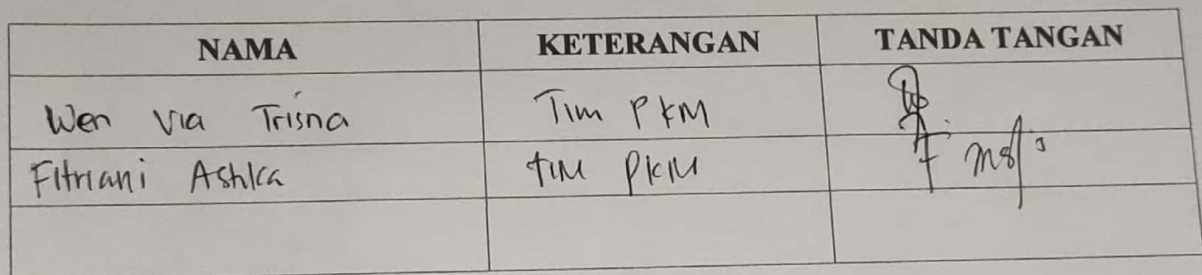 NAMA KETERANGAN TANDA TANGAN
Wen Via Trisna Tim PKM
Fitriani Ashka TIM PKM